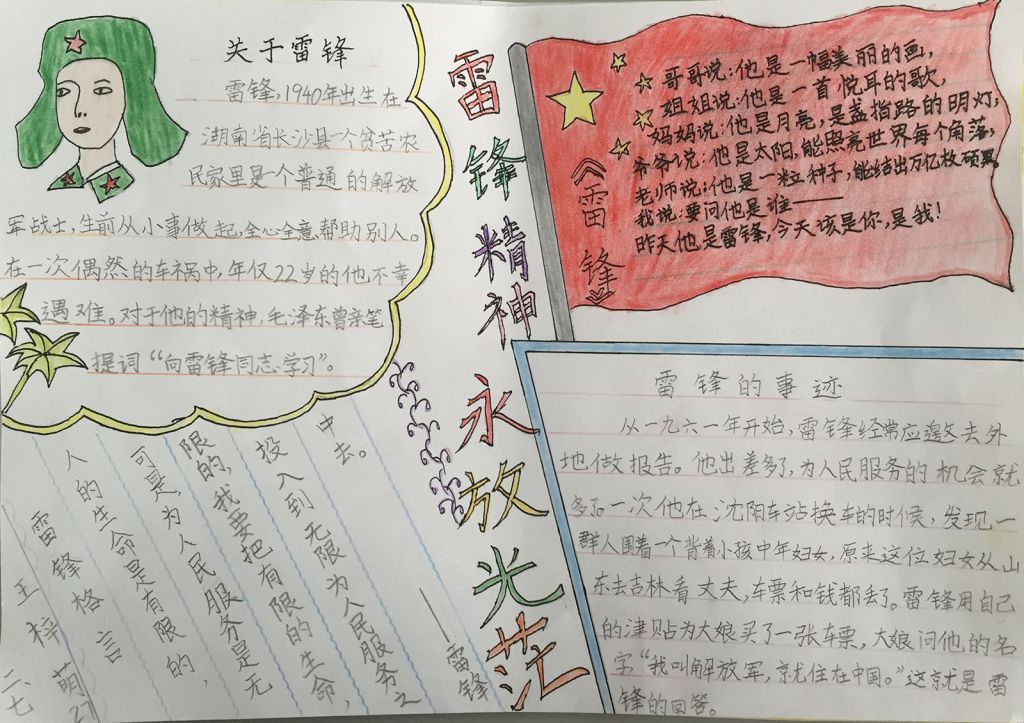 关于雷锋
雷锋,1940年出生在
湖南省长沙县一个贫苦农
民家里是一个普通的解放
军战士,生前从小事做起,全心全意帮助别人。
在一次偶然的车祸中,年仅22岁的他不幸
遇难。对于他的精神,毛泽东曾亲笔
提词“向雷锋同志学习”。
雷锋精神永放光茫
《雷锋》
哥哥说:他是一幅美丽的画,
姐姐说:他是一首悦耳的歌,
妈妈说:他是月亮,是盏指路的明灯,
爷爷说:他是太阳,能照亮世界每个角落,
老师说:他是一粒种子,能结出万亿枚硕果
我说:要问他是谁——
昨天他是雷锋,今天该是你,是我!
雷锋的事迹
从一九六一年开始,雷锋经常应邀去外
地做报告。他出差多了,为人民服务的机会就
多了。一次他在沈阳车站换车的时候,发现一
群人围着一个背着小孩中年妇女,原来这位妇女从山
东去吉林看丈夫,车票和钱都丢了。雷锋用自己
的津贴为大娘买了一张车票,大娘问他的名
字“我叫解放军,京尤住在中国。”这就是雷
锋的回答。
雷锋格言
人的生命是有限的,
可是,为人民服务是无
限的,我要把有限的生命,
投入到无限为人民服务之
中去。
——雷锋
二七
王梓萌27